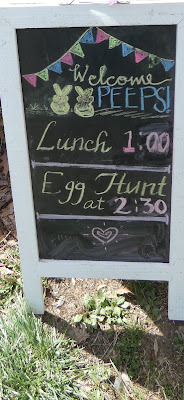 Welcome
PEEPS!
Lunch 1:00
Egg Hunt
at 2:30